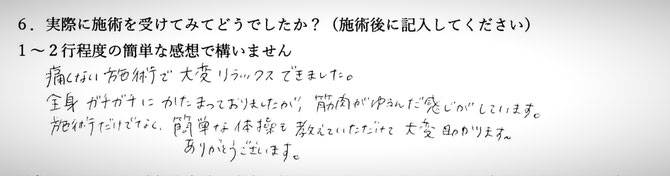 ６．実際に施術を受けてみてどうでしたか？（施術後に記入してください）
１～２行程度の簡単な感想で構いません
痛くない施術で大変リラックスできました。
全身ガチガチにかたまっておりましたが、筋肉がゆるんだ感じがしています。
施術だけでなく、簡単な体操も教えていただけて大変助かります。
ありがとうございます。